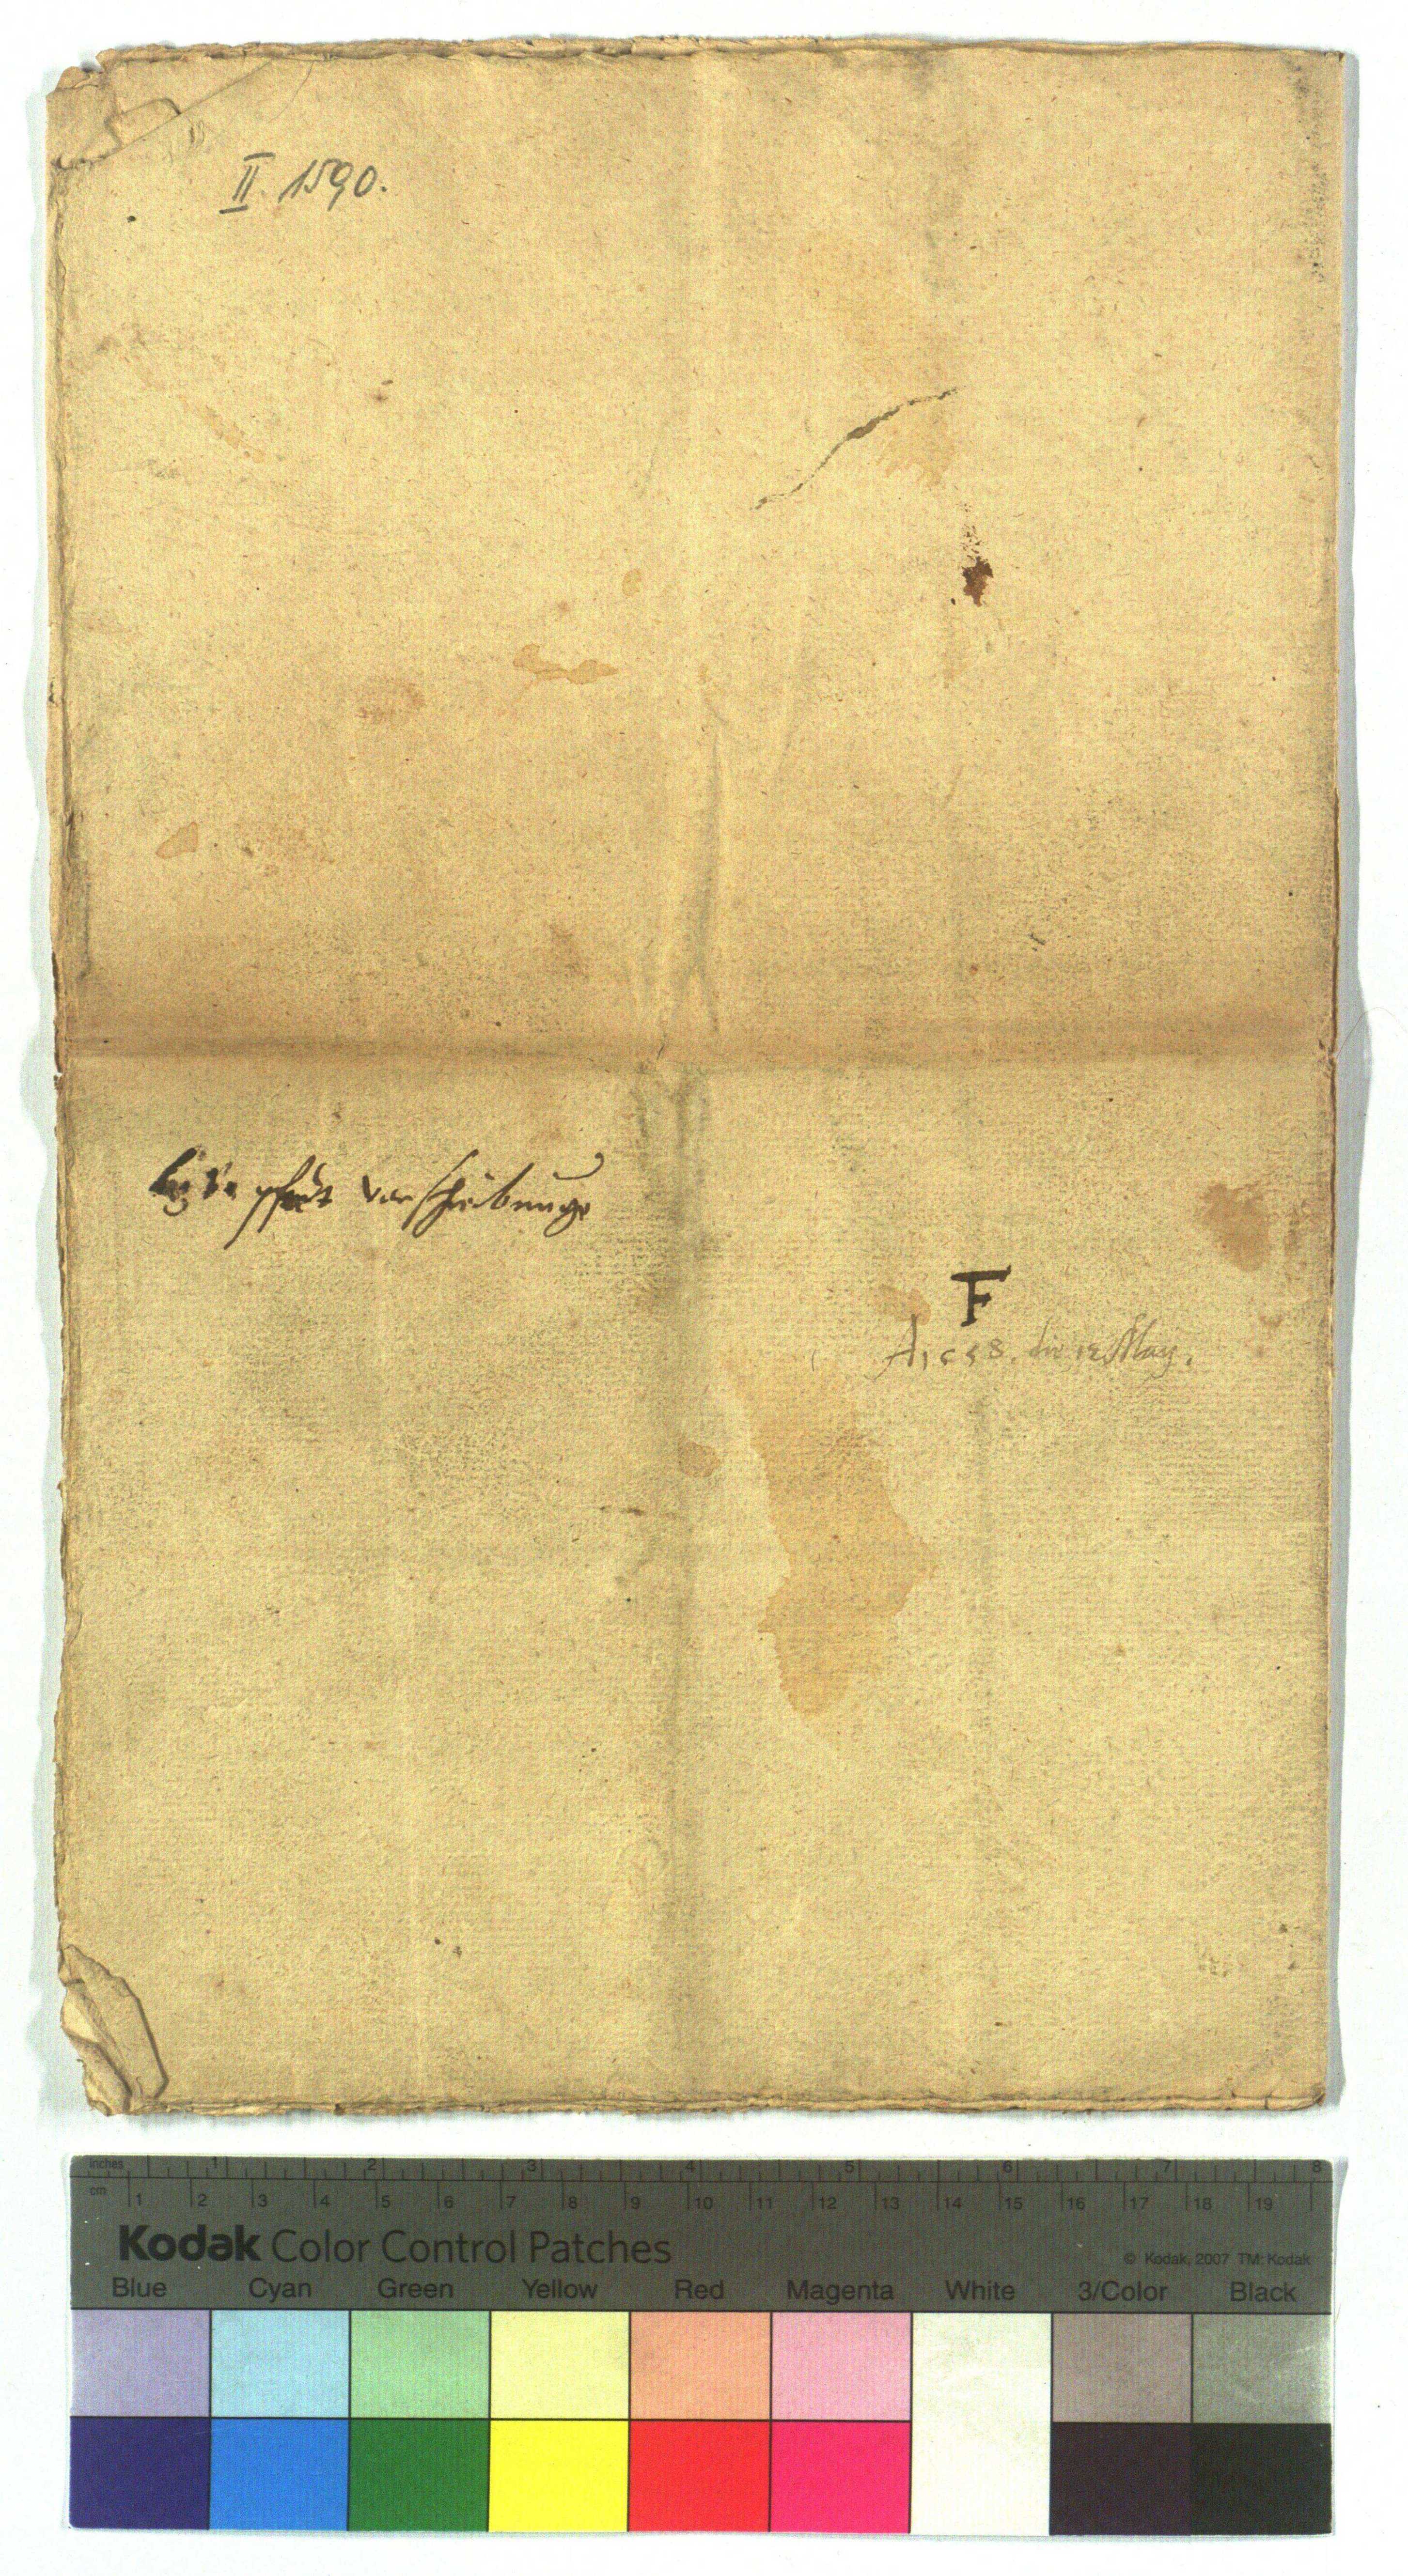 II. 1590.
verschribunge
F
A. 1658. die 12 May.
inches 1 2 3 4 5 6 7 8
cm 1 2 3 4 5 6 7 8 9 10 11 12 13 14 15 16 17 18 19
Kodak Color Control Patches
© Kodak, 2007 TM: Kodak
Blue Cyan Green Yellow Red Magenta White 3/Color Black